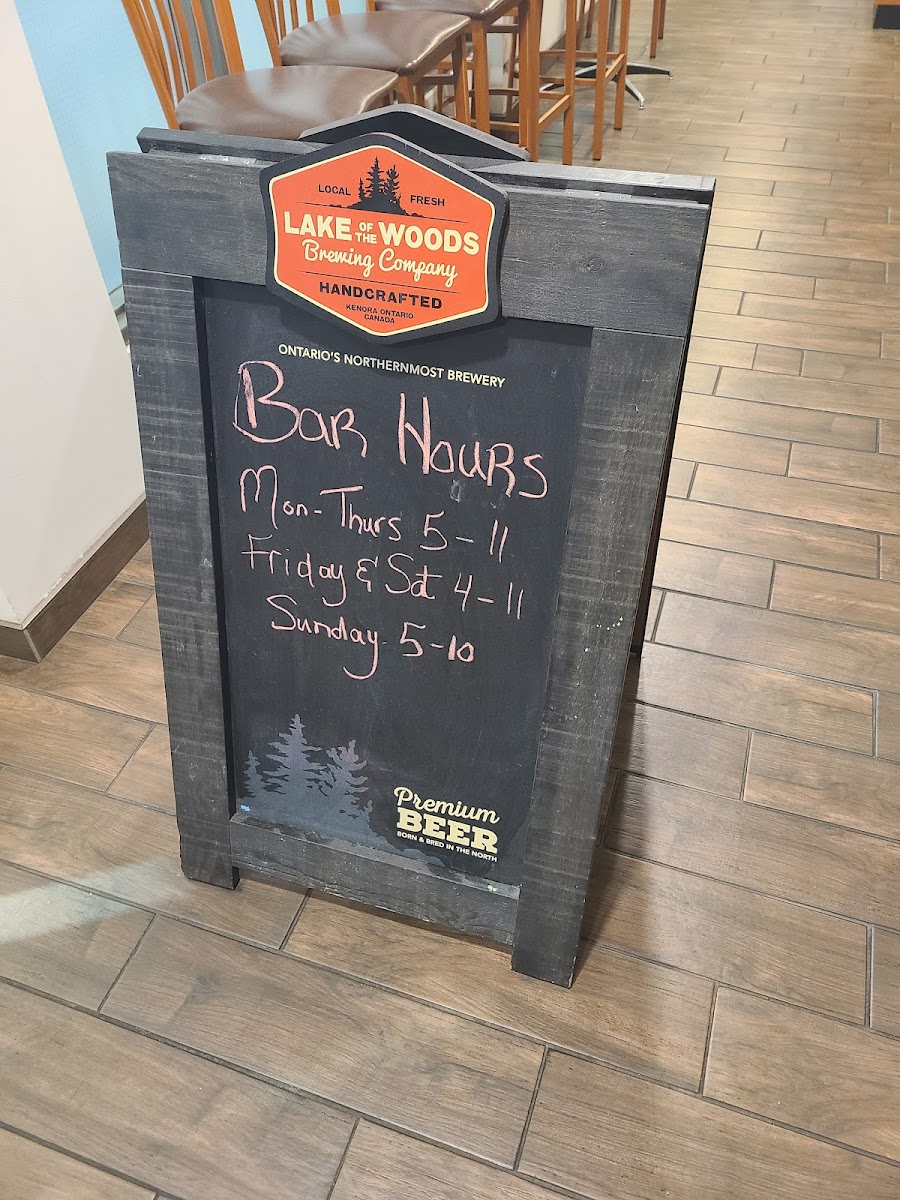 LOCAL FRESH
LAKE OF THE WOODS
Brewing Company
HANDCRAFTED
KENORA ONTARIO
CANADA
ONTARIO'S NORTHERNMOST BREWERY
Bar Hours
Mon-Thurs 5-11
Friday & Sat 4-11
Sunday 5-10
Premium
BEER
BORN & BRED IN THE NORTH